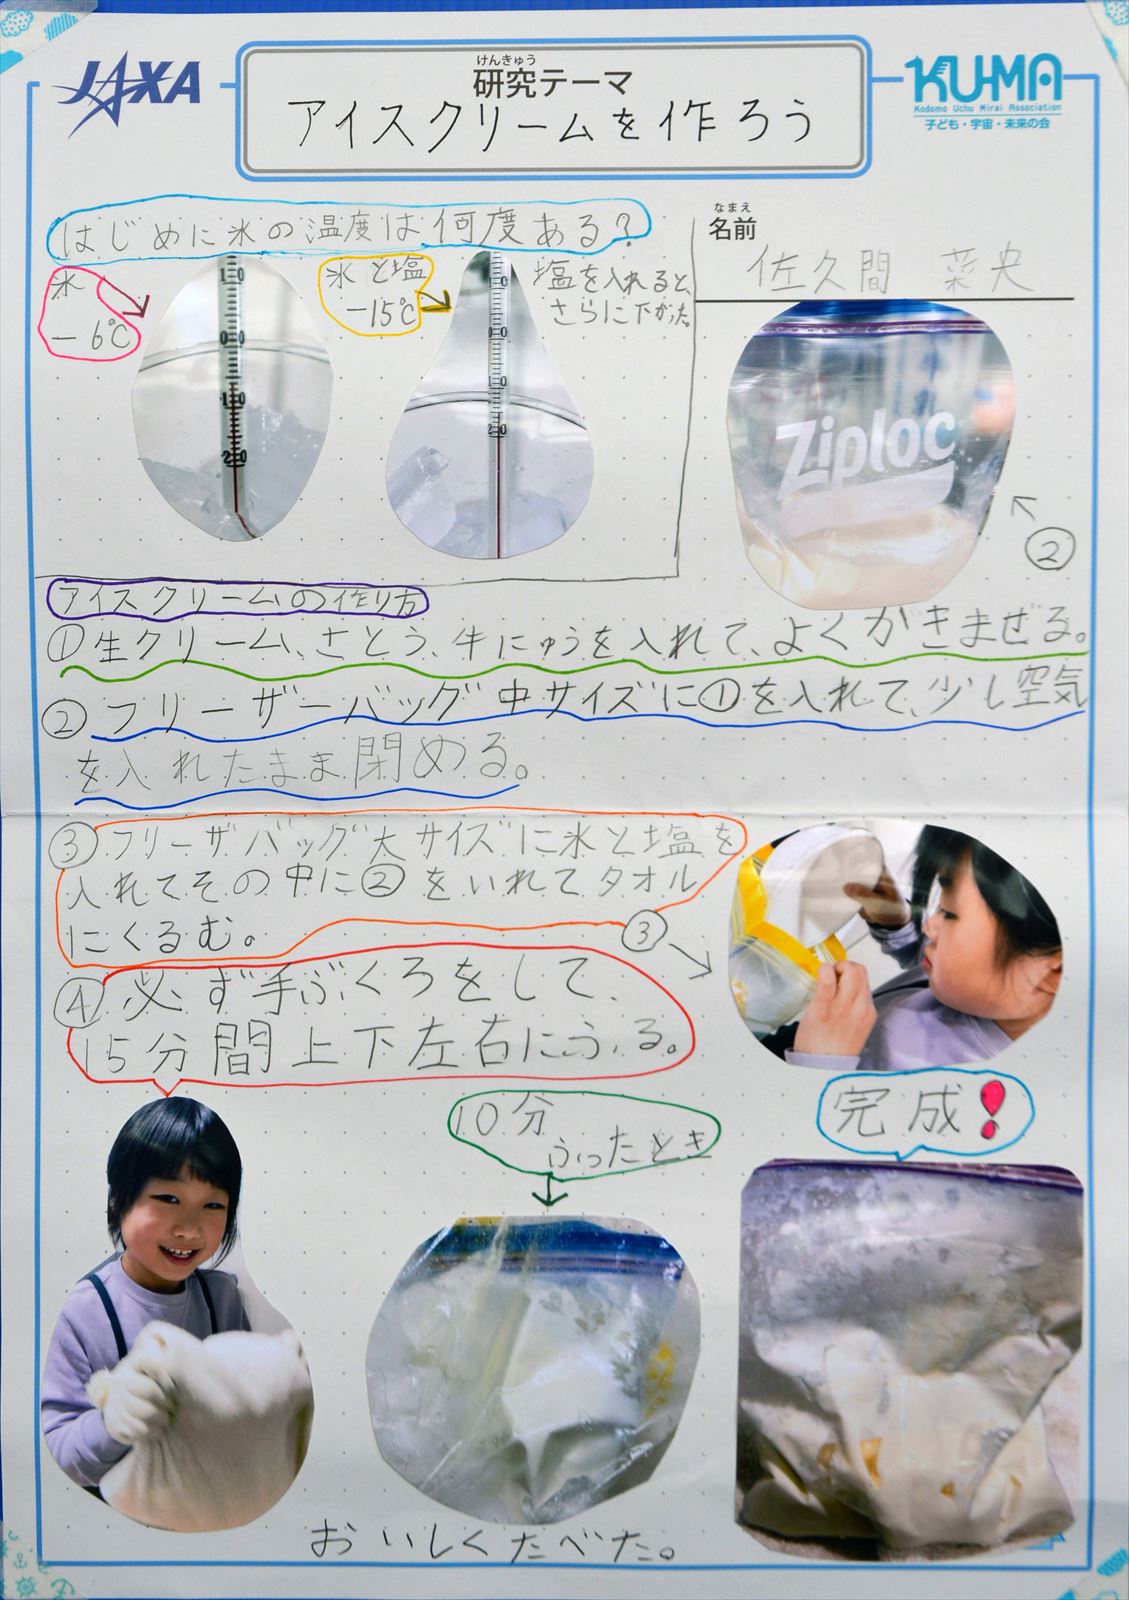 JAXA
けんきゅう
研究テーマ
アイスクリームを作ろう
KU-MA
Kodomo Uchu Mirai Association
子ども・宇宙・未来の会
はじめに氷の温度は何度ある?
氷
-6℃
氷と塩
-15℃
塩を入れると、
さらに下がった。
なまえ
名前
佐久間 菜央
10
0
10
20
10
0
10
20
Ziploc
②
アイスクリームの作り方
①生クリーム、さとう、牛にゅうを入れて、よくかきまぜる。
②フリーザーバッグ中サイズに①を入れて、少し空気
を入れたまま閉める。
③フリーザバッグ大サイズに氷と塩を
入れてその中に②をいれてタオル
にくるむ。
③
④必ず手ぶくろをして、
15分間上下左右にふる。
10分
ふったとき
完成!
おいしくたべた。